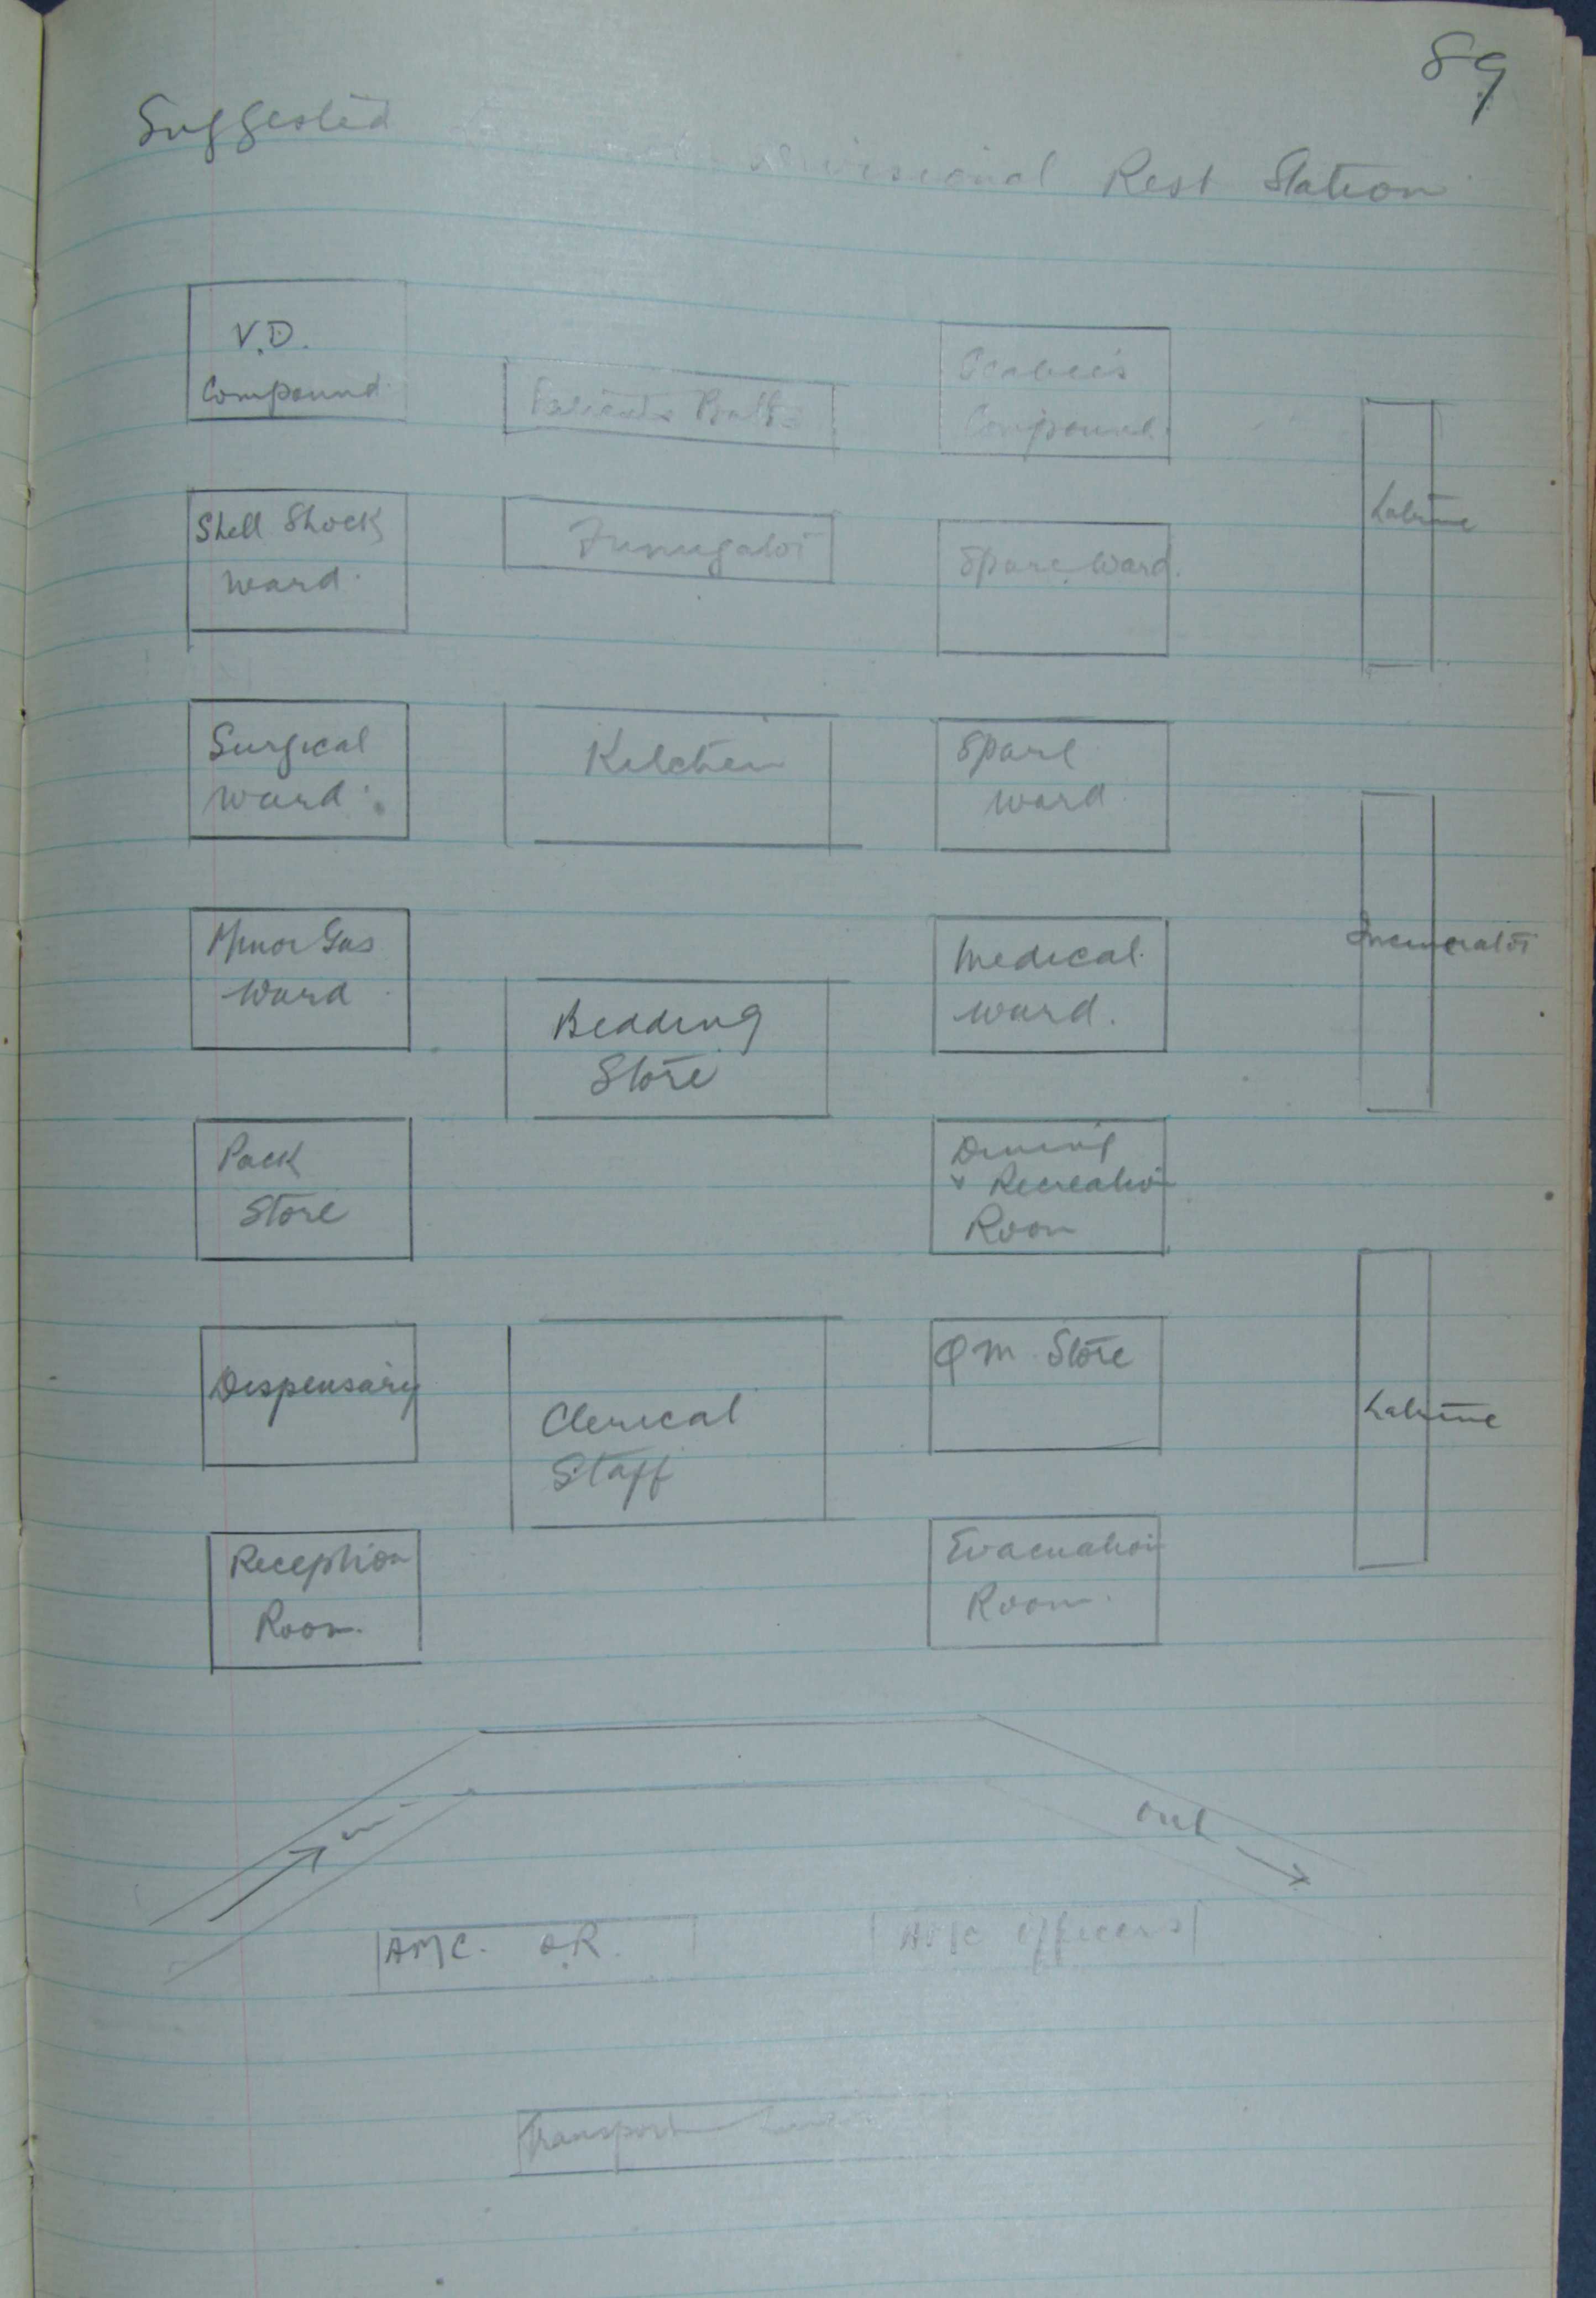 89
Suggested
Divisional Rest Station
V.D.
Compound
Patients Baths
Scabies
Compound
Latrine
Shell Shock
ward.
Fumigator
Spare Ward.
Surgical
ward.
Kitchen
Spare
ward
Minor Gas
Ward
Bedding
Store
Medical
ward.
Incinerator
Pack
Store
Dining
& Recreation
Room
Dispensary
Clerical
Staff
QM Store
Latrine
Reception
Room.
Evacuation
Room.
in
out
AMC. O.R.
AMC Officers
Transport